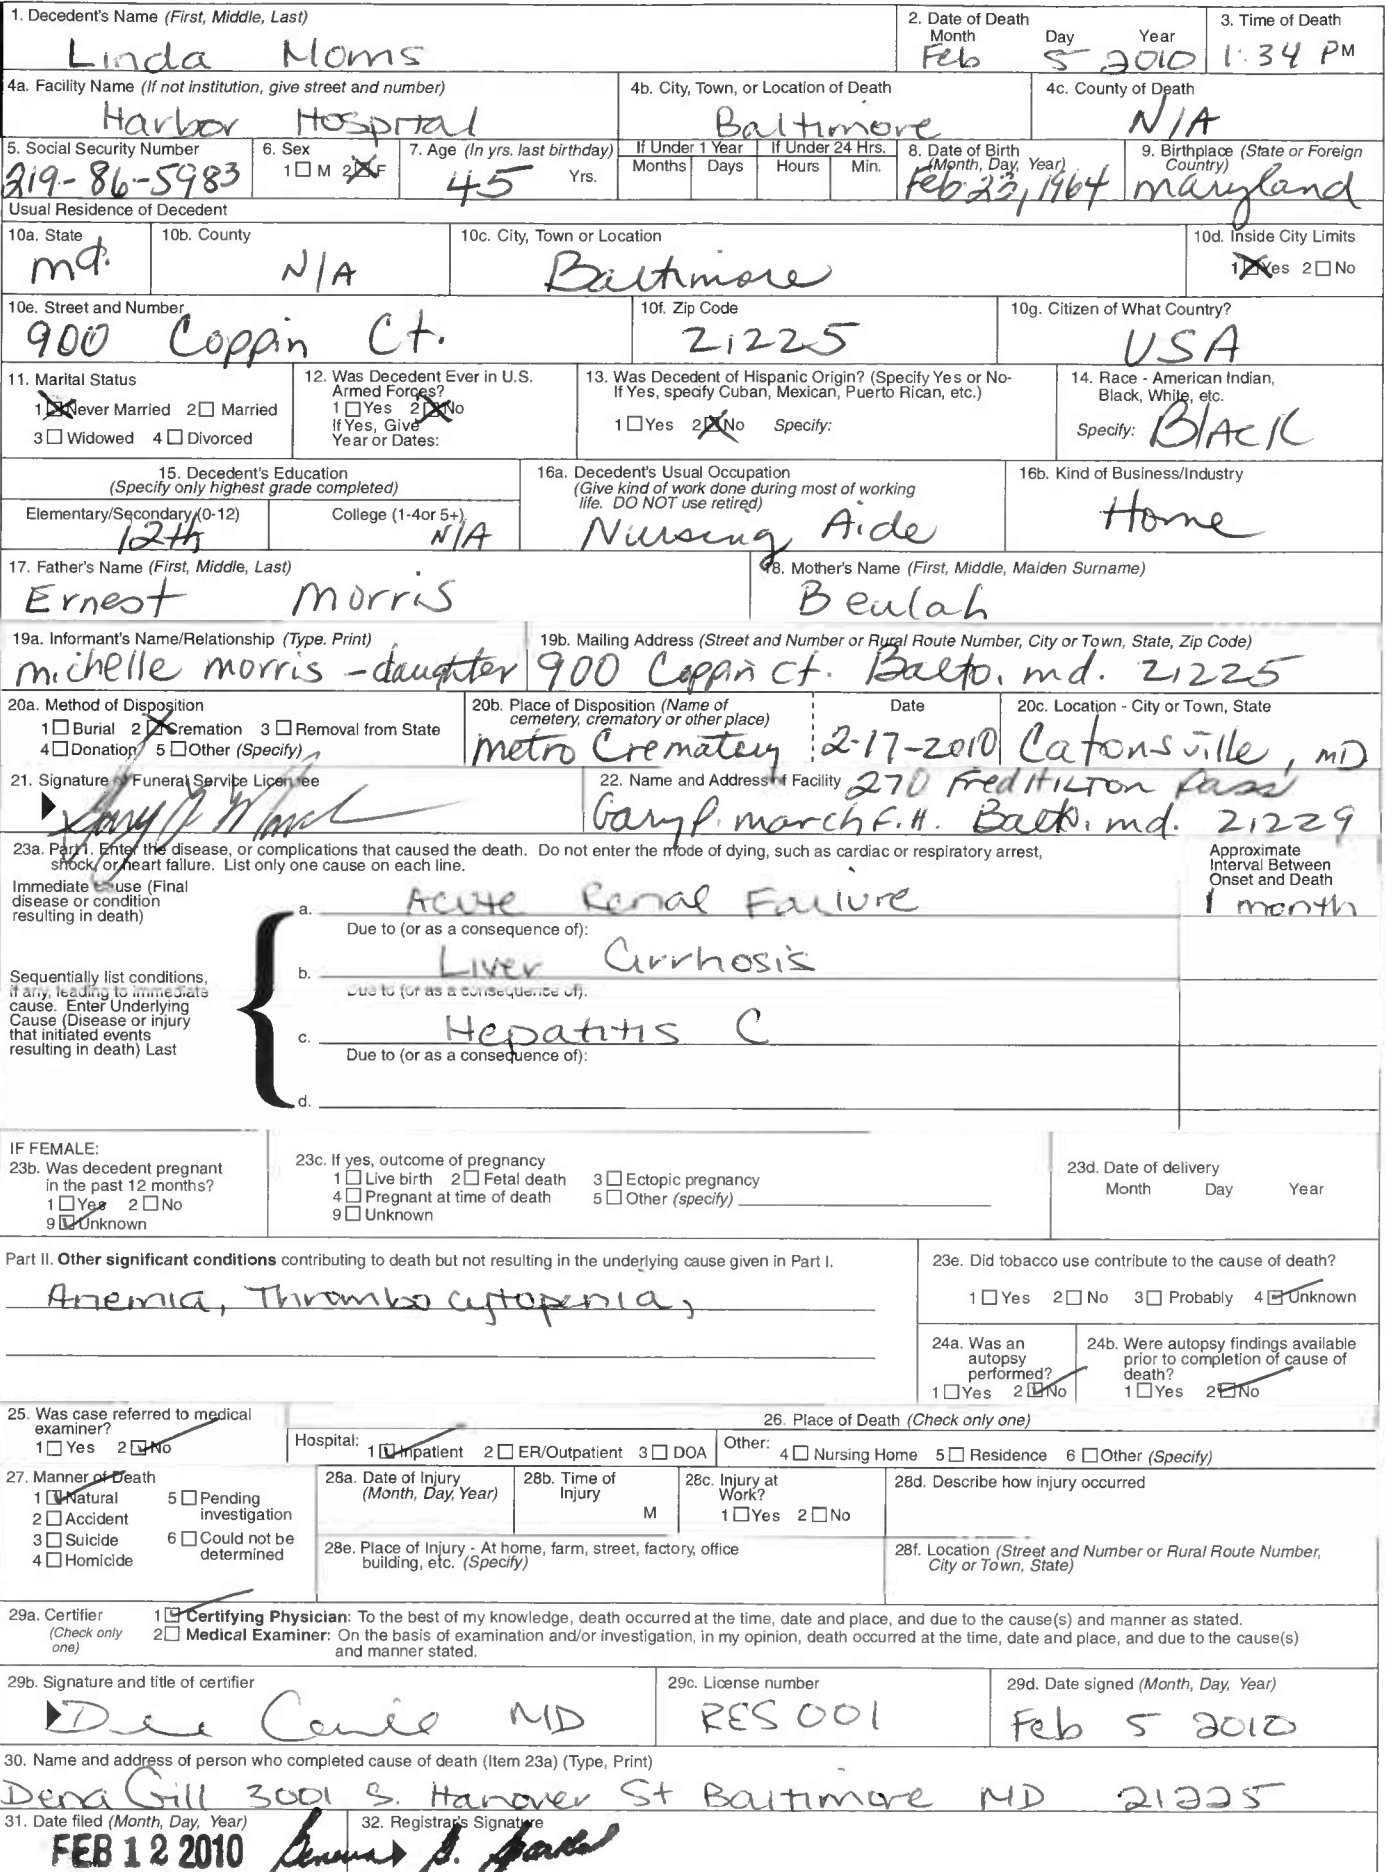 1. Decedent's Name (First, Middle, Last)
Linda Morris
2. Date of Death
Month Day Year
Feb 5 2010
3. Time of Death
1:34 PM
4a. Facility Name (If not institution, give street and number)
Harbor Hospital
4b. City, Town, or Location of Death
Baltimore
4c. County of Death
N/A
5. Social Security Number
219-86-5983
6. Sex
1☐ M 2☒F
7. Age (In yrs. last birthday)
45 Yrs.
If Under 1 Year
Months Days
If Under 24 Hrs.
Hours Min.
8. Date of Birth
(Month, Day, Year)
Feb. 22, 1964
9. Birthplace (State or Foreign
Country)
maryland
Usual Residence of Decedent
10a. State
md.
10b. County
N/A
10c. City, Town or Location
Baltimore
10d. Inside City Limits
1☒Yes 2☐No
10e. Street and Number
900 Coppin Ct.
10f. Zip Code
21225
10g. Citizen of What Country?
USA
11. Marital Status
1☒Never Married 2☐ Married
3☐Widowed 4☐Divorced
12. Was Decedent Ever in U.S.
Armed Forces?
1☐Yes 2☒No
If Yes, Give
Year or Dates:
13. Was Decedent of Hispanic Origin? (Specify Yes or No-
If Yes, specify Cuban, Mexican, Puerto Rican, etc.)
1☐Yes 2☒No Specify:
14. Race - American Indian,
Black, White, etc.
Specify: BlACK
15. Decedent's Education
(Specify only highest grade completed)
Elementary/Secondary (0-12)
12th
College (1-4or 5+)
N/A
16a. Decedent's Usual Occupation
(Give kind of work done during most of working
life. DO NOT use retired)
Nursing Aide
16b. Kind of Business/Industry
Home
17. Father's Name (First, Middle, Last)
Ernest Morris
18. Mother's Name (First, Middle, Maiden Surname)
Beulah
19a. Informant's Name/Relationship (Type. Print)
michelle morris - daughter
19b. Mailing Address (Street and Number or Rural Route Number, City or Town, State, Zip Code)
900 Coppin ct. Balto. md. 21225
20a. Method of Disposition
1☐Burial 2☒Cremation 3☐Removal from State
4☐Donation 5☐Other (Specify)
20b. Place of Disposition (Name of
cemetery, crematory or other place)
Metro Crematory
Date
2-17-2010
20c. Location - City or Town, State
Catonsville, MD
21. Signature of Funeral Service Licensee
22. Name and Address of Facility 270 Fred HILTON Pass
Gary P. march F.H. Balto. md. 21229
23a. Part I. Enter the disease, or complications that caused the death. Do not enter the mode of dying, such as cardiac or respiratory arrest,
shock, or heart failure. List only one cause on each line.
Approximate
Interval Between
Onset and Death
Immediate Cause (Final
disease or condition
resulting in death)
a. Acute Renal Failure
1 month
Due to (or as a consequence of):
Sequentially list conditions,
if any, leading to immediate
cause. Enter Underlying
Cause (Disease or injury
that initiated events
resulting in death) Last
b. Liver Cirrhosis
Due to (or as a consequence of):
c. Hepatitis C
Due to (or as a consequence of):
d.
IF FEMALE:
23b. Was decedent pregnant
in the past 12 months?
1☐Yes 2☐No
9☑Unknown
23c. If yes, outcome of pregnancy
1☐Live birth 2☐Fetal death 3☐Ectopic pregnancy
4☐Pregnant at time of death 5☐Other (specify)
9☐Unknown
23d. Date of delivery
Month Day Year
Part II. Other significant conditions contributing to death but not resulting in the underlying cause given in Part I.
Anemia, Thrombocytopenia,
23e. Did tobacco use contribute to the cause of death?
1☐Yes 2☐No 3☐Probably 4☑Unknown
24a. Was an
autopsy
performed?
1☐Yes 2☑No
24b. Were autopsy findings available
prior to completion of cause of
death?
1☐Yes 2☑No
25. Was case referred to medical
examiner?
1☐Yes 2☑No
26. Place of Death (Check only one)
Hospital: 1☑Inpatient 2☐ER/Outpatient 3☐DOA
Other: 4☐Nursing Home 5☐Residence 6☐Other (Specify)
27. Manner of Death
1☑Natural 5☐Pending
investigation
2☐Accident
3☐Suicide 6☐Could not be
determined
4☐Homicide
28a. Date of Injury
(Month, Day, Year)
28b. Time of
Injury
M
28c. Injury at
Work?
1☐Yes 2☐No
28d. Describe how injury occurred
28e. Place of Injury - At home, farm, street, factory, office
building, etc. (Specify)
28f. Location (Street and Number or Rural Route Number,
City or Town, State)
29a. Certifier
(Check only
one)
1☑Certifying Physician: To the best of my knowledge, death occurred at the time, date and place, and due to the cause(s) and manner as stated.
2☐ Medical Examiner: On the basis of examination and/or investigation, in my opinion, death occurred at the time, date and place, and due to the cause(s)
and manner stated.
29b. Signature and title of certifier
MD
29c. License number
RES 001
29d. Date signed (Month, Day, Year)
Feb 5 2010
30. Name and address of person who completed cause of death (Item 23a) (Type, Print)
Dena Gill 3001 S. Hanover St Baltimore MD 21225
31. Date filed (Month, Day, Year)
FEB 12 2010
32. Registrar's Signature